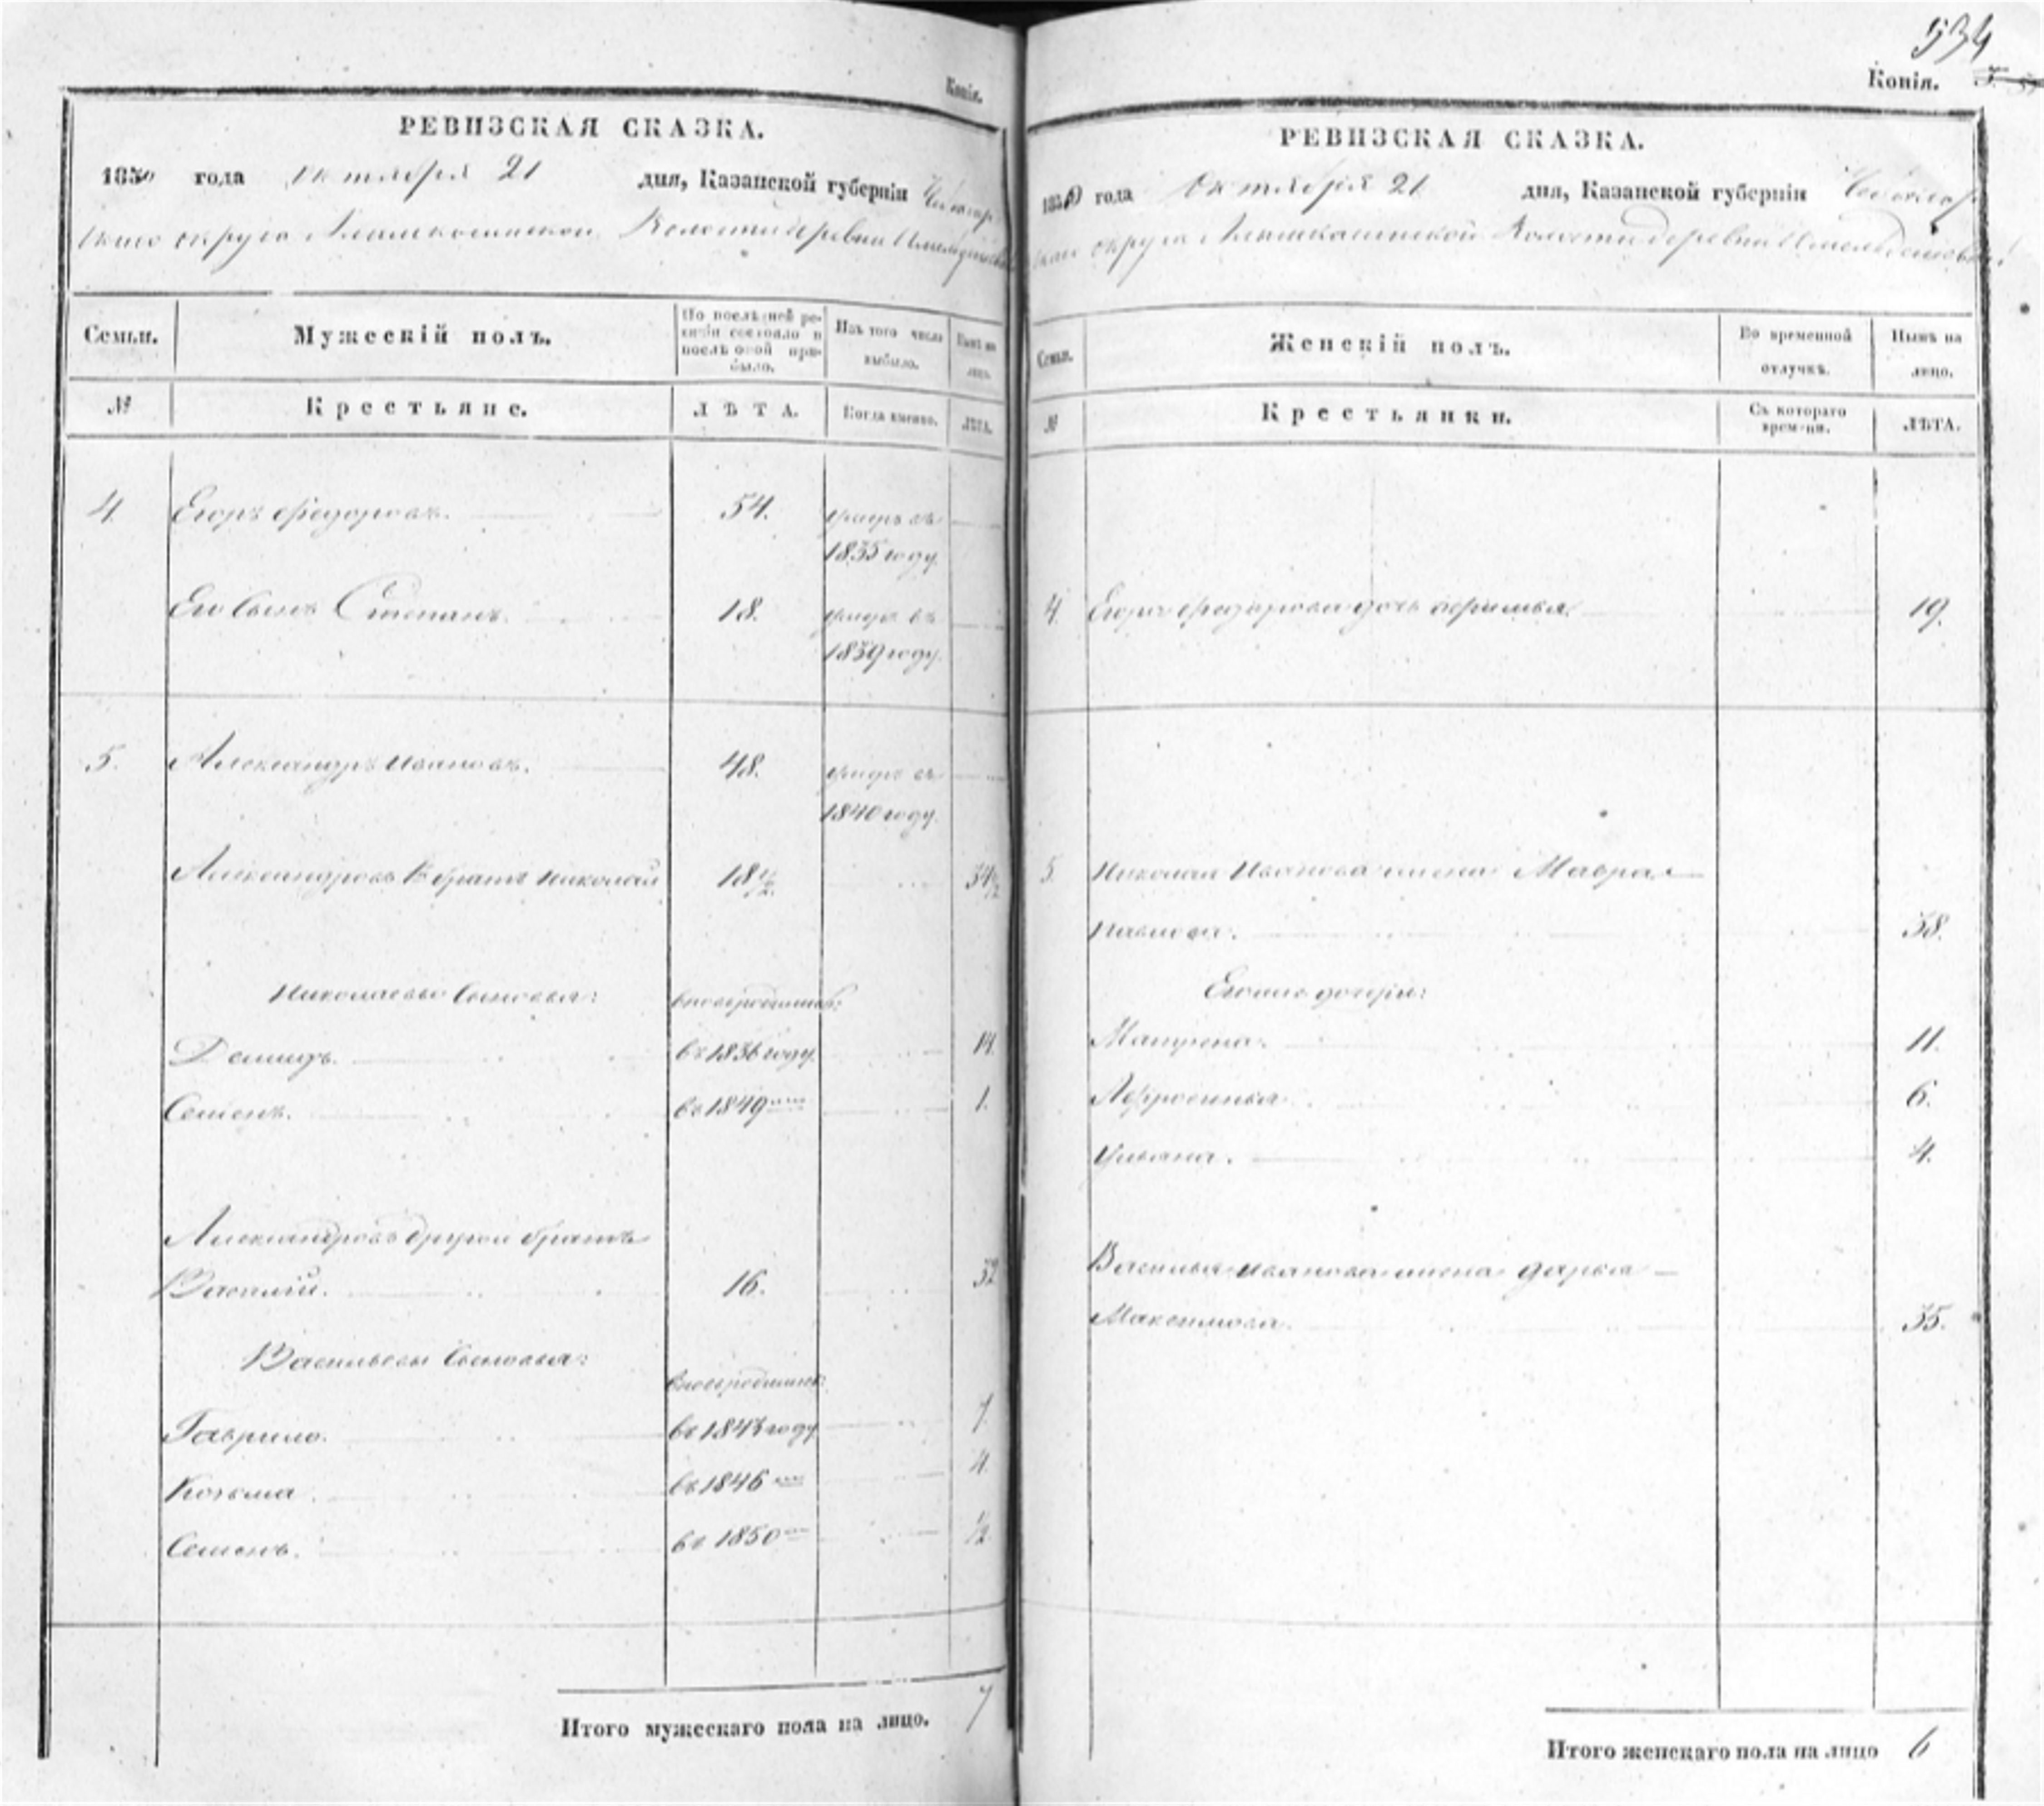 Копія.
РЕВИЗСКАЯ СКАЗКА.
1850 года октября 21 дня, Казанской губерніи Чебоксар
скаго округа Волости деревни
Семьи. Мужескій полъ. По послѣдней ревизіи состояло и послѣ оной прибыло. Изъ того числа выбыло. Нынѣ на лицо.
№ Крестьяне. ЛѢТА. Когда именно. ЛѢТА.
4 Егоръ Федоровъ. 54. умеръ въ
1835 году.
Его сынъ Степанъ. 18. умеръ въ
1839 году.
5. Александръ Ивановъ. 48. умеръ въ
1840 году.
Александровъ 1й братъ Николай 18 1/2. 34 1/2
Николаевы сыновья: вновьрожденные:
Демидъ. въ 1836 году. 14.
Семенъ. въ 1849 1.
Александровъ другой братъ
Василій. 16. 32
Васильевы сыновья: вновьрожденные:
Гаврило. въ 1843 году 7
Козьма. въ 1846 4.
Семенъ. въ 1850 1/2.
Итого мужескаго пола на лицо. 7
534
Копія.
РЕВИЗСКАЯ СКАЗКА.
1850 года Октября 21 дня, Казанской губерніи Чебоксар
скаго округа Волости деревни
Семьи. Женскій полъ. Во временной отлучкѣ. Нынѣ на лицо.
№ Крестьянки. Съ котораго времени. ЛѢТА.
4. Егора Федорова дочь 19.
5. Николая Иванова жена Мавра
Павлова. 38.
Егоже дочери:
Матрена. 11.
Афросинья. 6.
Ульяна. 4.
Василья Иванова жена Дарья
Максимова. 35.
Итого женскаго пола на лицо 6